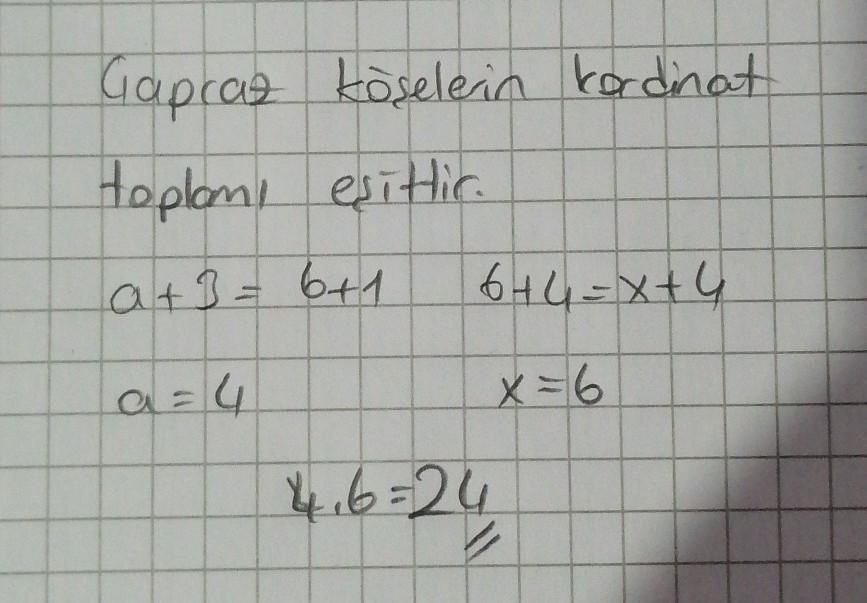 Çapraz köşelein kordinat
toplamı eşittir.
a+3= 6+1 6+4=x+4
a=4 x=6
4.6=24